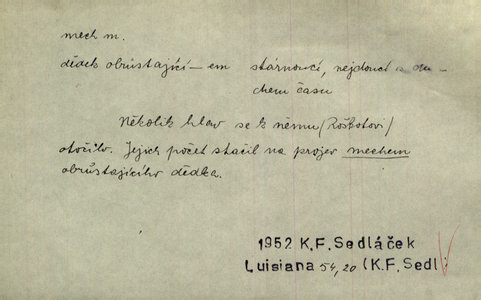 mech m.
dědek obrůstající – em stárnoucí, nejdoucí s du-
chem času
Několik hlav se k němu /Roškotovi/
otočilo. Jejich počet stačil na projev mechem
obrůstajícího dědka.
1952 K.F.Sedláček
Luisiana 54, 20 (K.F.Sedl